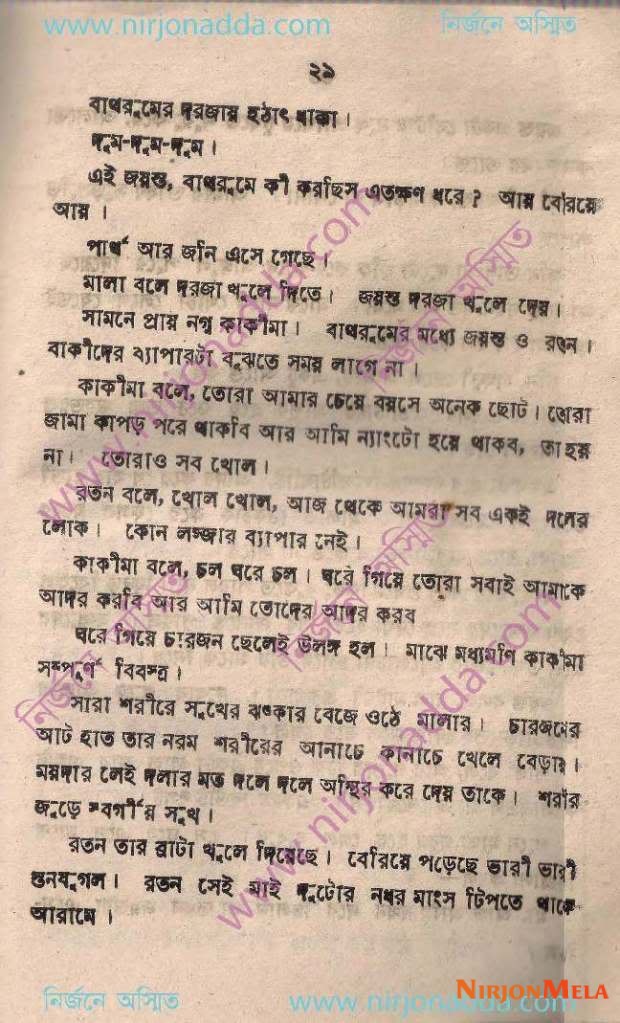 www.nirjonadda.com নির্জনে অস্মিত
২৯
বাথরুমের দরজায় হঠাৎ ধাক্কা।
দুম-দুম-দুম।
এই জয়ন্ত, বাথরুমে কী করছিস এতক্ষণ ধরে? আয় বেরিয়ে
আয়।
পার্থ আর জনি এসে গেছে।
মালা বলে দরজা খুলে দিতে। জয়ন্ত দরজা খুলে দেয়।
সামনে প্রায় নগ্ন কাকীমা। বাথরুমের মধ্যে জয়ন্ত ও রতন।
বাকীদের ব্যাপারটা বুঝতে সময় লাগে না।
কাকীমা বলে, তোরা আমার চেয়ে বয়সে অনেক ছোট। তোরা
জামা কাপড় পরে থাকবি আর আমি ন্যাংটো হয়ে থাকব, তা হয়
না। তোরাও সব খোল।
রতন বলে, খোল খোল, আজ থেকে আমরা সব একই দলের
লোক। কোন লজ্জার ব্যাপার নেই।
কাকীমা বলে, চল ঘরে চল। ঘরে গিয়ে তোরা সবাই আমাকে
আদর করবি আর আমি তোদের আদর করব
ঘরে গিয়ে চারজন ছেলেই উলঙ্গ হল। মাঝে মধ্যমণি কাকীমা
সম্পূর্ণ বিবস্ত্র।
সারা শরীরে সুখের ঝংকার বেজে ওঠে মালার। চারজনের
আট হাত তার নরম শরীরের আনাচে কানাচে খেলে বেড়ায়।
ময়দার লেই দলার মত দলে দলে অস্থির করে দেয় তাকে। শরীর
জুড়ে স্বর্গীয় সুখ।
রতন তার ব্রাটা খুলে দিয়েছে। বেরিয়ে পড়েছে ভারী ভারী
স্তনযুগল। রতন সেই মাই দুটোর নধর মাংস টিপতে থাকে
আরামে।
www.nirjonadda.com নির্জনে অস্মিত
www.nirjonadda.com নির্জনে অস্মিত
নির্জনে অস্মিত www.nirjonadda.com
NIRJONMELA